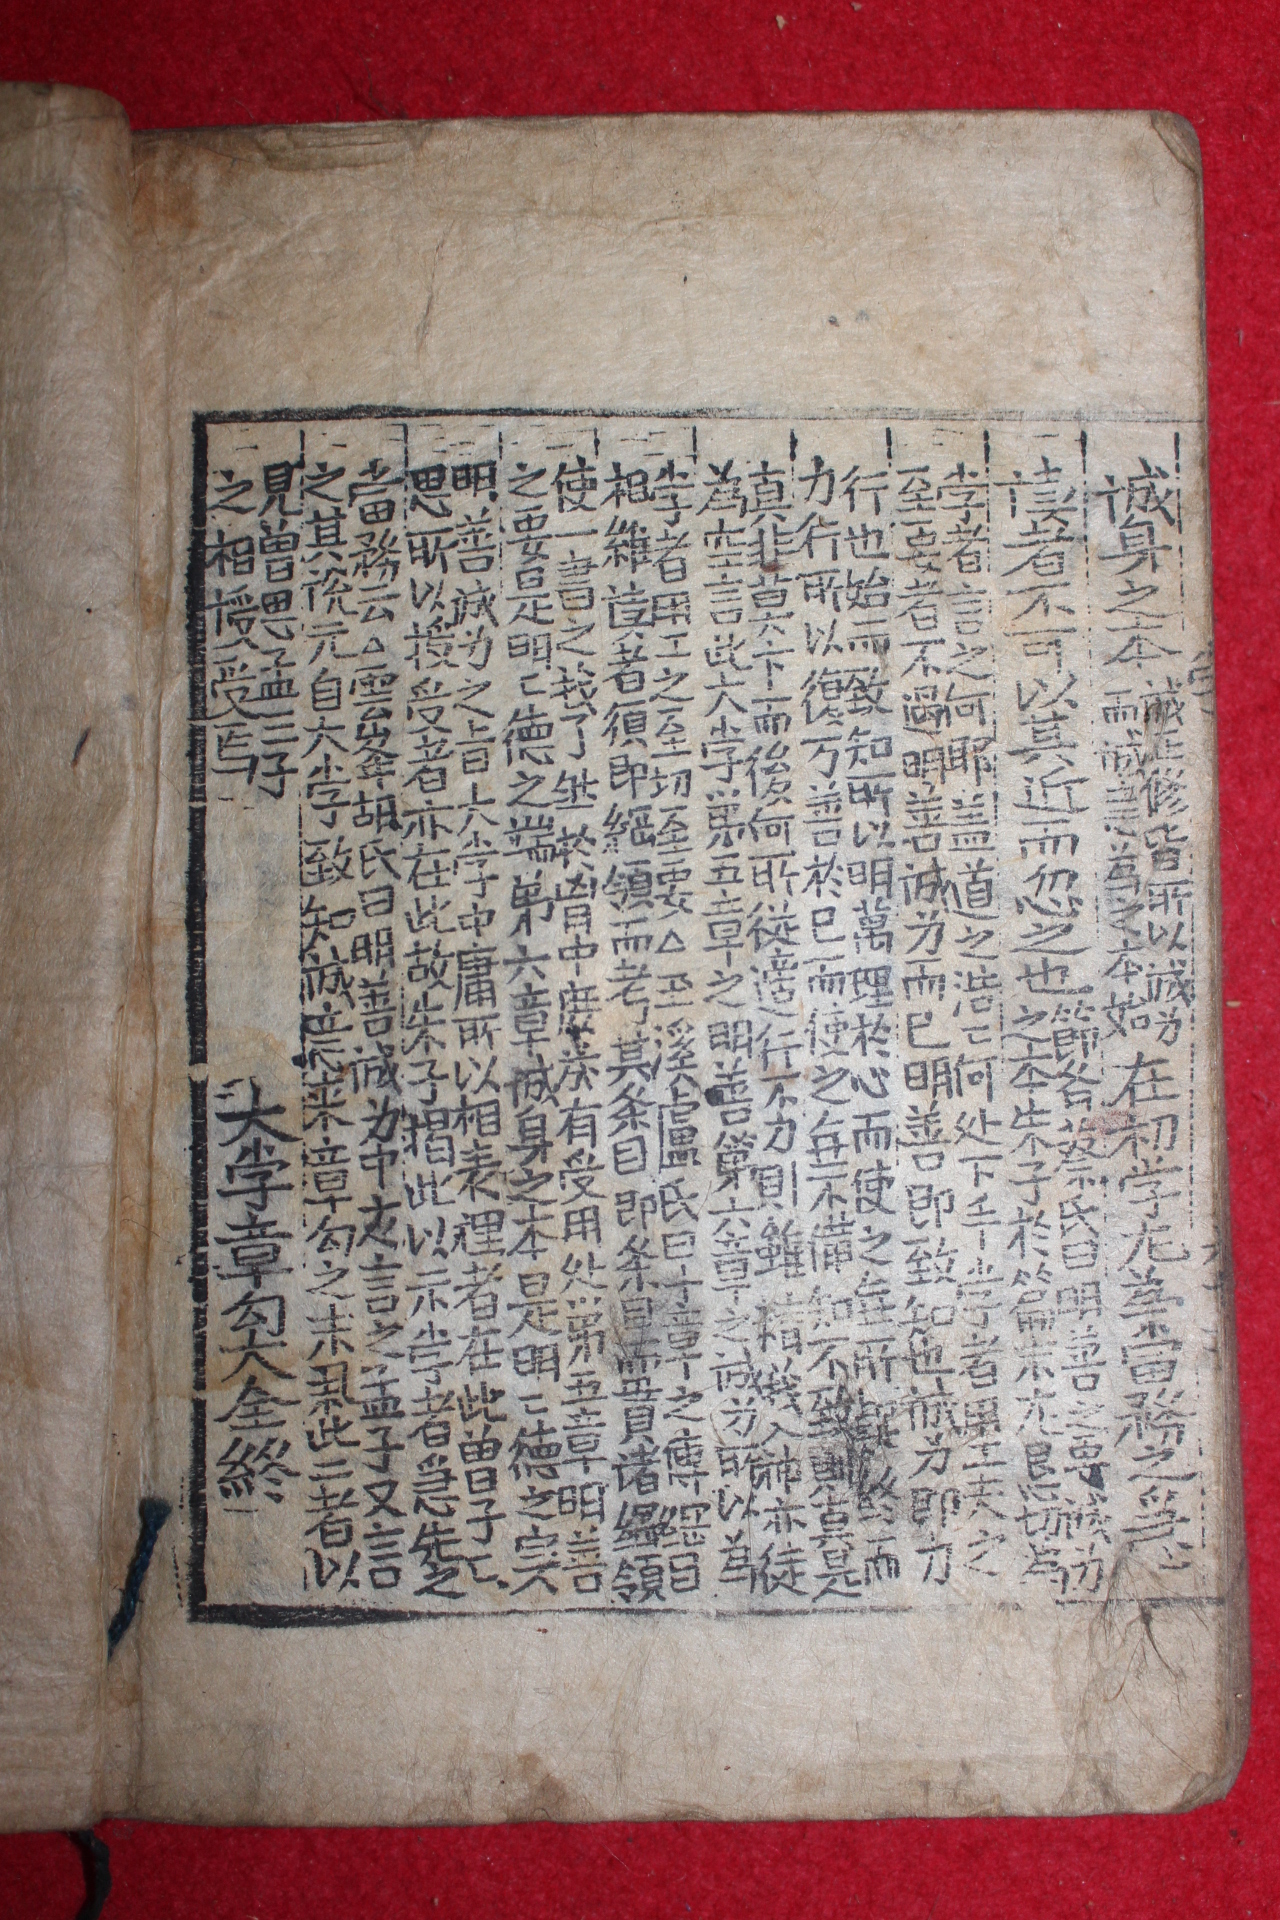 誠身之本誠正修皆所以誠身
而誠意為之本始在初学尤為當務之急
讀者不可以其近而忽之也節齋蔡氏曰明善之要誠身
之本朱子於篇末尤懇切為
学者言之何耶盖道之浩〻何处下手学者用工夫之
至要者不過明善誠身而已明善即致知也誠身即力
行也始而致知所以明萬理於心而使之無所疑終而
力行所以復万善於己而使之無不備知不致則真是
真非莫卞而後何所從適行不力則雖精義入神亦徒
為空言此大学第五章之明善第六章之誠身所以為
学者用工之至切至要△玉溪盧氏曰十章之傳綱目
相維讀者須即綱領而考其条目即条目而貫諸綱領
使一書之㦲了然於胷中庶㡬有受用处第五章明善
之要是明〻德之端第六章誠身之本是明〻德之宗
明善誠身之旨大学中庸所以相表裡者在此曽子子
思所以授受者亦在此故朱子揭此以示学者急先之
當務云△雲峯胡氏曰明善誠身中庸言之孟子又言
之其㳂元自大学致知誠意来章句之末舉此二者以
見曽思孟三子
之相授受焉
大学章句大全終